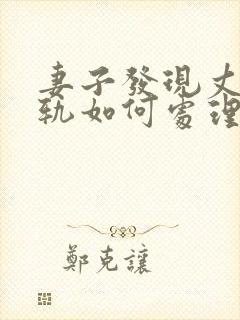 妻子發現丈
軌如何處理
鄭克讓